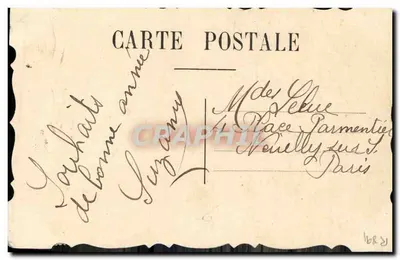 CARTE POSTALE
Souhaits
de bonne année
Suzanne
Mdes
Place Parmentier
Neuilly sur S.
Paris
CPArama